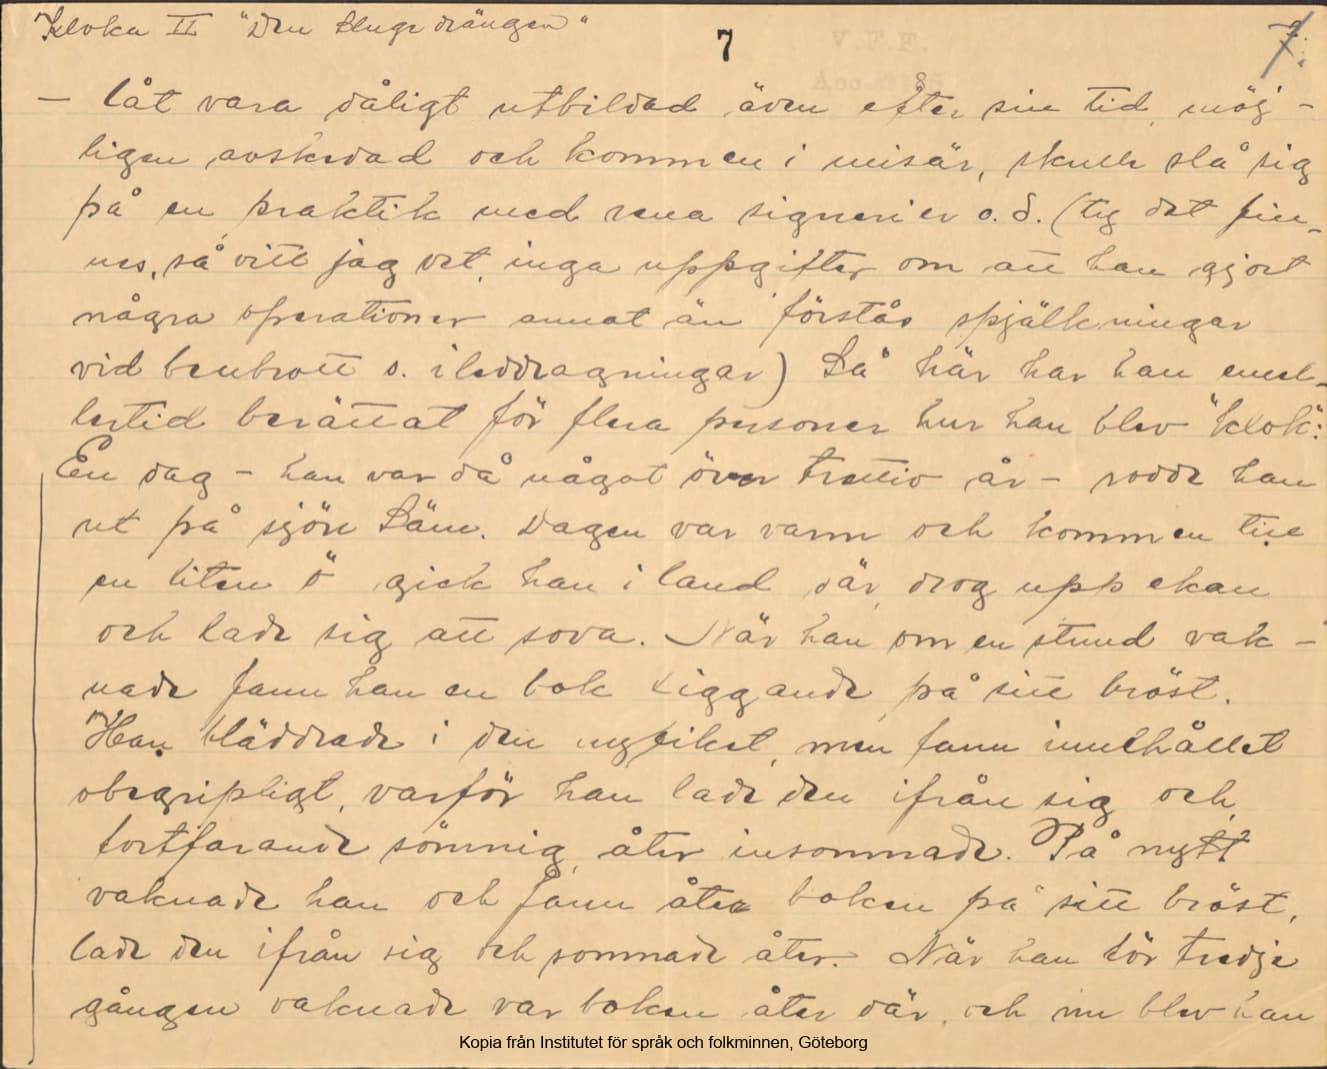 Kloka II "Den sluge drängen"
7
7.
V.F.F.
— låt vara dåligt utbildad även efter sin tid, möj-
ligen avskedad och kommen i misär, skulle slå sig
på en praktik med rena signerier o.d. (ty det fin-
nes, så vitt jag vet, inga uppgifter om att han gjort
några operationer annat än förstås spjälkningar
vid benbrott o. ileddragningar) Så här har han emel-
lertid berättat för flera personer hur han blev "klok":
En dag – han var då något över trettio år – rodde han
ut på sjön Säm. Dagen var varm och kommen till
en liten ö gick han i land där, drog upp ekan
och lade sig att sova. När han om en stund vak-
nade fann han en bok liggande på sitt bröst.
Han bläddrade i den nyfiket, men fann innehållet
obegripligt, varför han lade den ifrån sig och,
fortfarande sömnig, åter insomnade. På nytt
vaknade han och fann åter boken på sitt bröst,
lade den ifrån sig och somnade åter. När han för tredje
gången vaknade var boken åter där, och nu blev han
Kopia från Institutet för språk och folkminnen, Göteborg